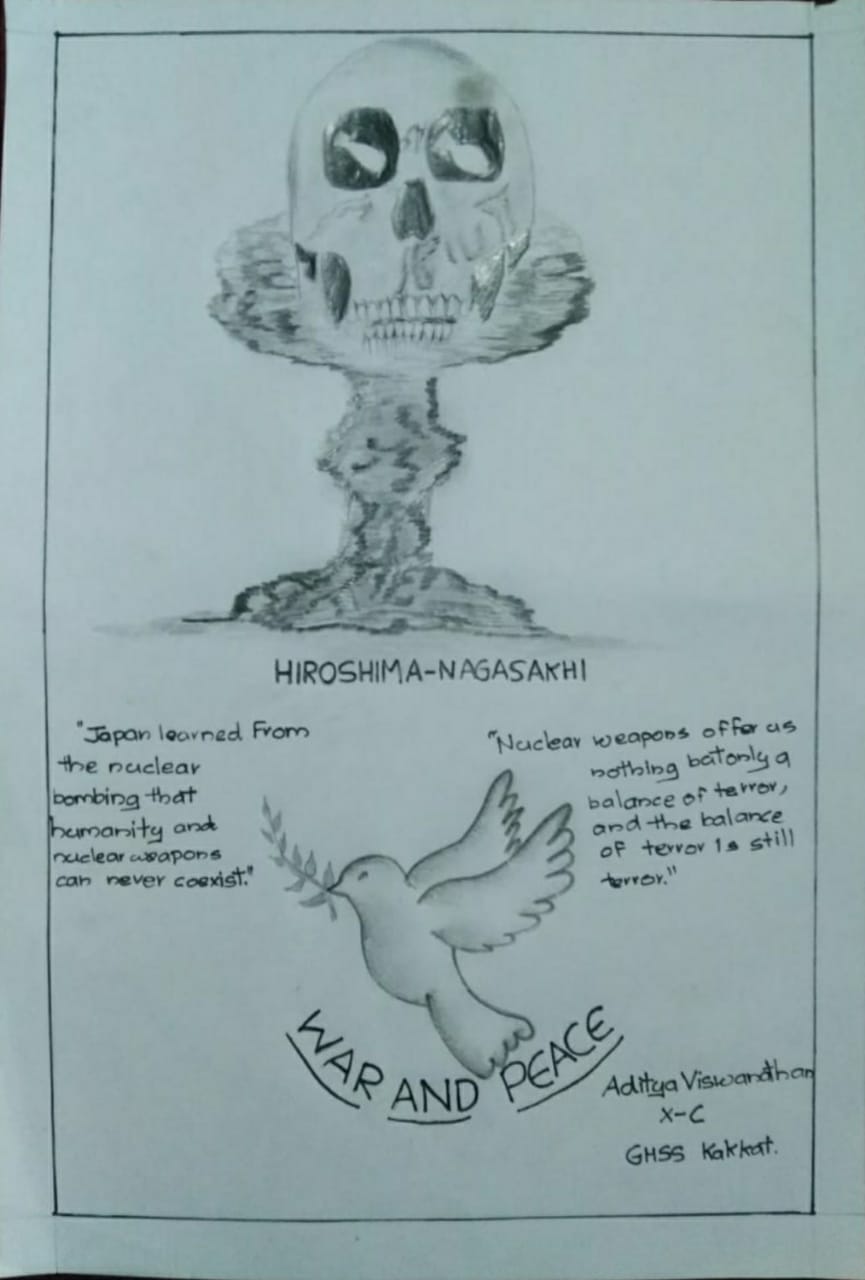 HIROSHIMA-NAGASAKHI
"Japan learned From
the nuclear
bombing that
humanity and
nuclear weapons
can never coexist."
"Nuclear weapons offer us
nothing but only a
balance of terror,
and the balance
of terror is still
terror."
WAR AND PEACE
Aditya Viswandthan
X-C
GHSS Kakkat.